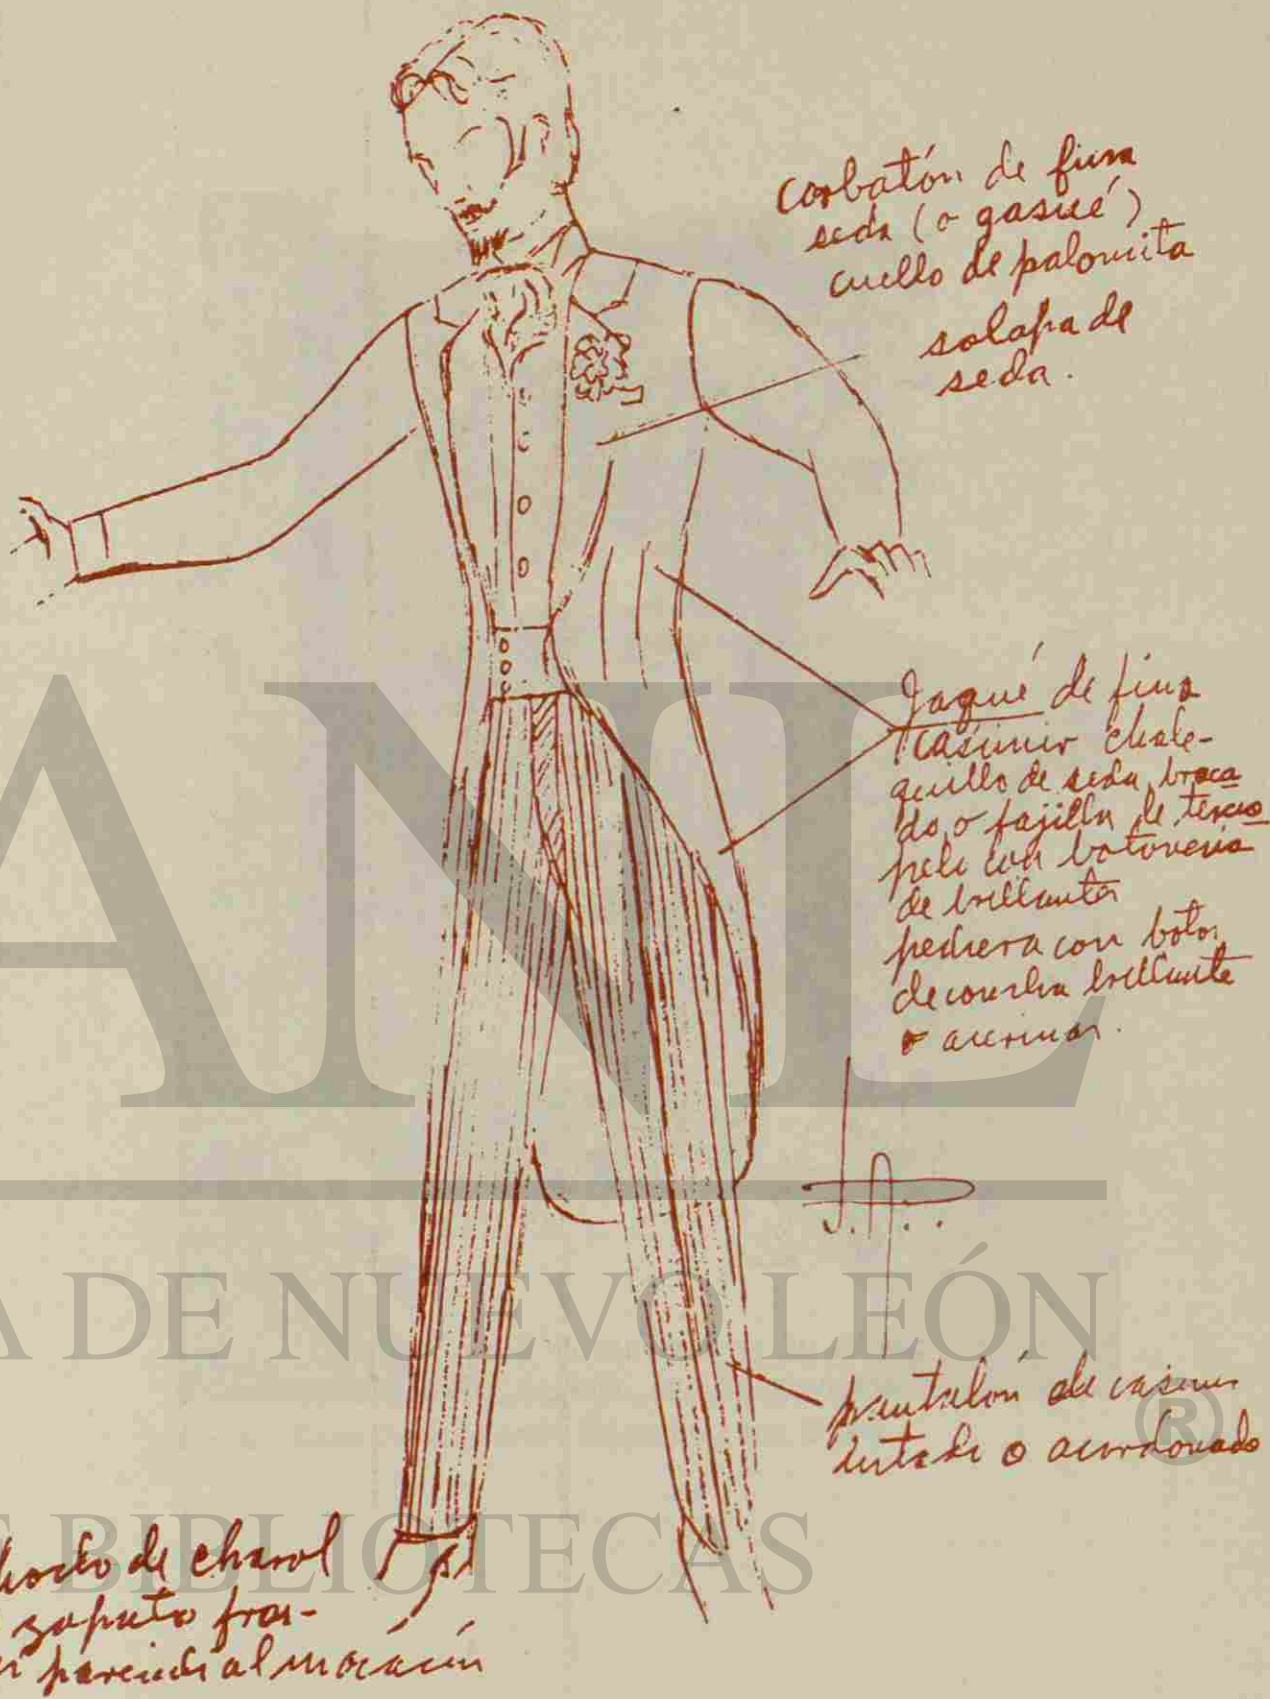 corbatón de fina
seda (o gasué)
cuello de palomita
solapa de
seda.
Jaqué de fino
casimir chale-
quillo de seda, broca
do, o fajilla de tercio
pelo con botonería
de brillantes
pechera con boton
de concha brillante
o
J.A..
pantalón de casimir
listado o acordonado
de charol
zapato fran-
parecido al mocasín
ANL
A DE NUEVO LEÓN
®
E BIBLIOTECAS